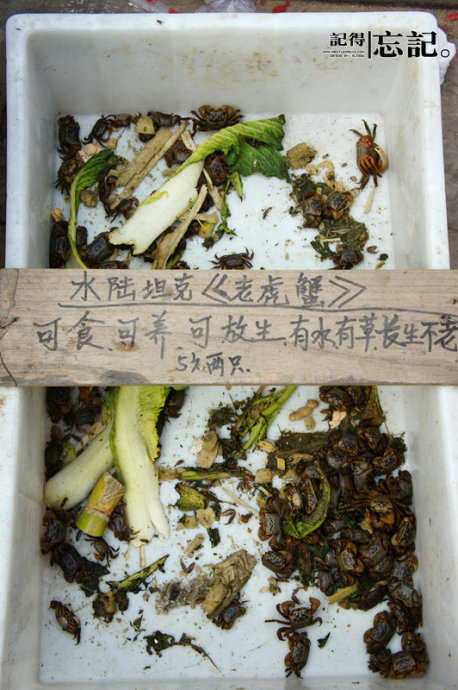 記得 忘記。
水陆坦克《老虎蟹》
可食.可养.可放生.有水有草,长生不老
5元两只.